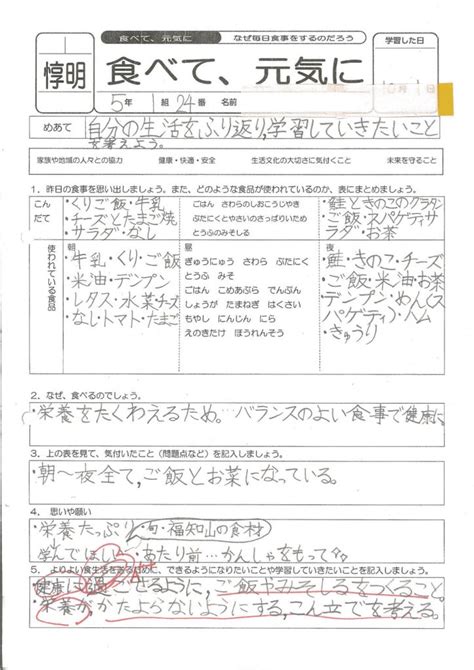 食べて、元気に
なぜ毎日食事をするのだろう
学習した日
惇明
食べて、元気に
5年 1組 24番 名前
めあて
自分の生活をふり返り,学習していきたいこと
を考えよう。
家族や地域の人々との協力 健康・快適・安全 生活文化の大切さに気付くこと 未来を守ること
1．昨日の食事を思い出しましょう。また、どのような食品が使われているのか、表にまとめましょう。
こんだて
・くりご飯・牛乳
・チーズとたまご焼
・サラダ・なし
ごはん さわらのしおこうじやき
ぶたにくとやさいのさっぱりいため
とうふのみそしる
・鮭ときのこのグラタン
・ご飯・スパゲティサ
ラダ・お茶
使われている食品
朝
・牛乳・くり・ご飯
・米油・デンプン
・レタス・水菜チーズ
・なし・トマト・たまご
昼
ぎゅうにゅう さわら ぶたにく
とうふ みそ
ごはん こめあぶら でんぷん
しょうが たまねぎ はくさい
もやし にんじん にら
えのきたけ ほうれんそう
夜
・鮭・きのこ・チーズ
・ご飯・米油・お茶
デンプン・めん(ス
パゲティ)・ハム
・きゅうり
2．なぜ、食べるのでしょう。
・栄養をたくわえるため。…バランスのよい食事で健康に
3．上の表を見て、気付いたこと（問題点など）を記入しましょう。
・朝〜夜全て,ご飯とお菜になっている。
4．思いや願い
・栄養たっぷり・旬・福知山の食材
学んでほしい・あたり前…かんしゃをもって
5．よりよい食生活を
ために、できるようになりたいことや学習していきたいことを記入しましょう。
・健康に過ごせるように,ご飯やみそしるをつくること。
・栄養がかたよらないようにする,こん立てを考える。